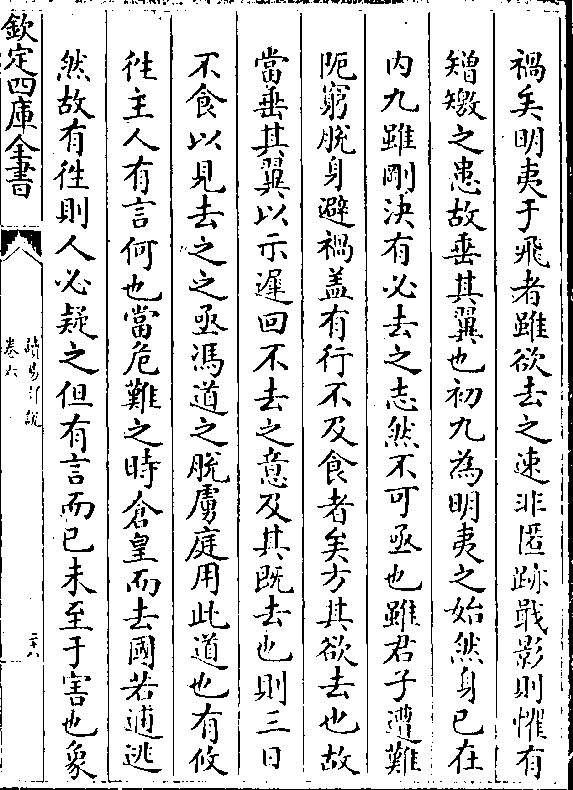 禍矣明夷于飛者雖欲去之速非匿跡戢影則懼有
矰繳之患故垂其翼也初九為明夷之始然身已在
内九雖剛決有必去之志然不可亟也雖君子遭難
阨窮脫身避禍盖有行不及食者矣方其欲去也故
當垂其翼以示遲回不去之意及其既去也則三日
不食以見去之之亟馮道之脫虜庭用此道也有攸
徃主人有言何也當危難之時倉皇而去國若逋逃
然故有徃則人必疑之但有言而已未至于害也象
欽定四庫全書
讀易詳説
卷六
二十八